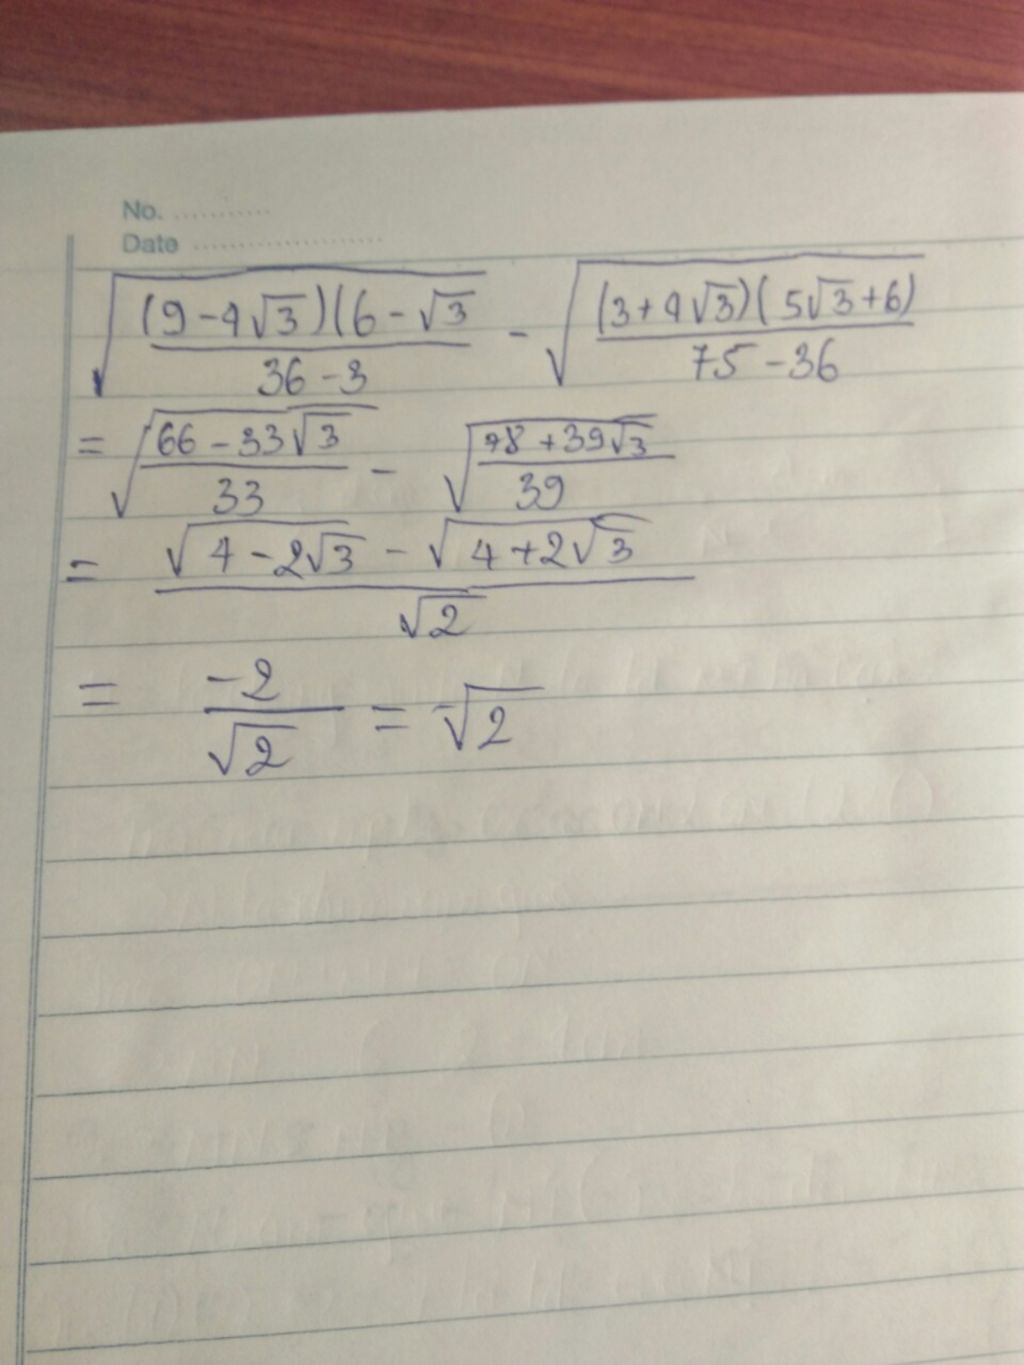 No. ...........
Date .....................
√((9-4√3)(6-√3)/(36-3)) - √((3+4√3)(5√3+6)/(75-36))
= √((66-33√3)/33) - √((78+39√3)/39)
= (√(4-2√3) - √(4+2√3))/√2
= -2/√2 = -√2